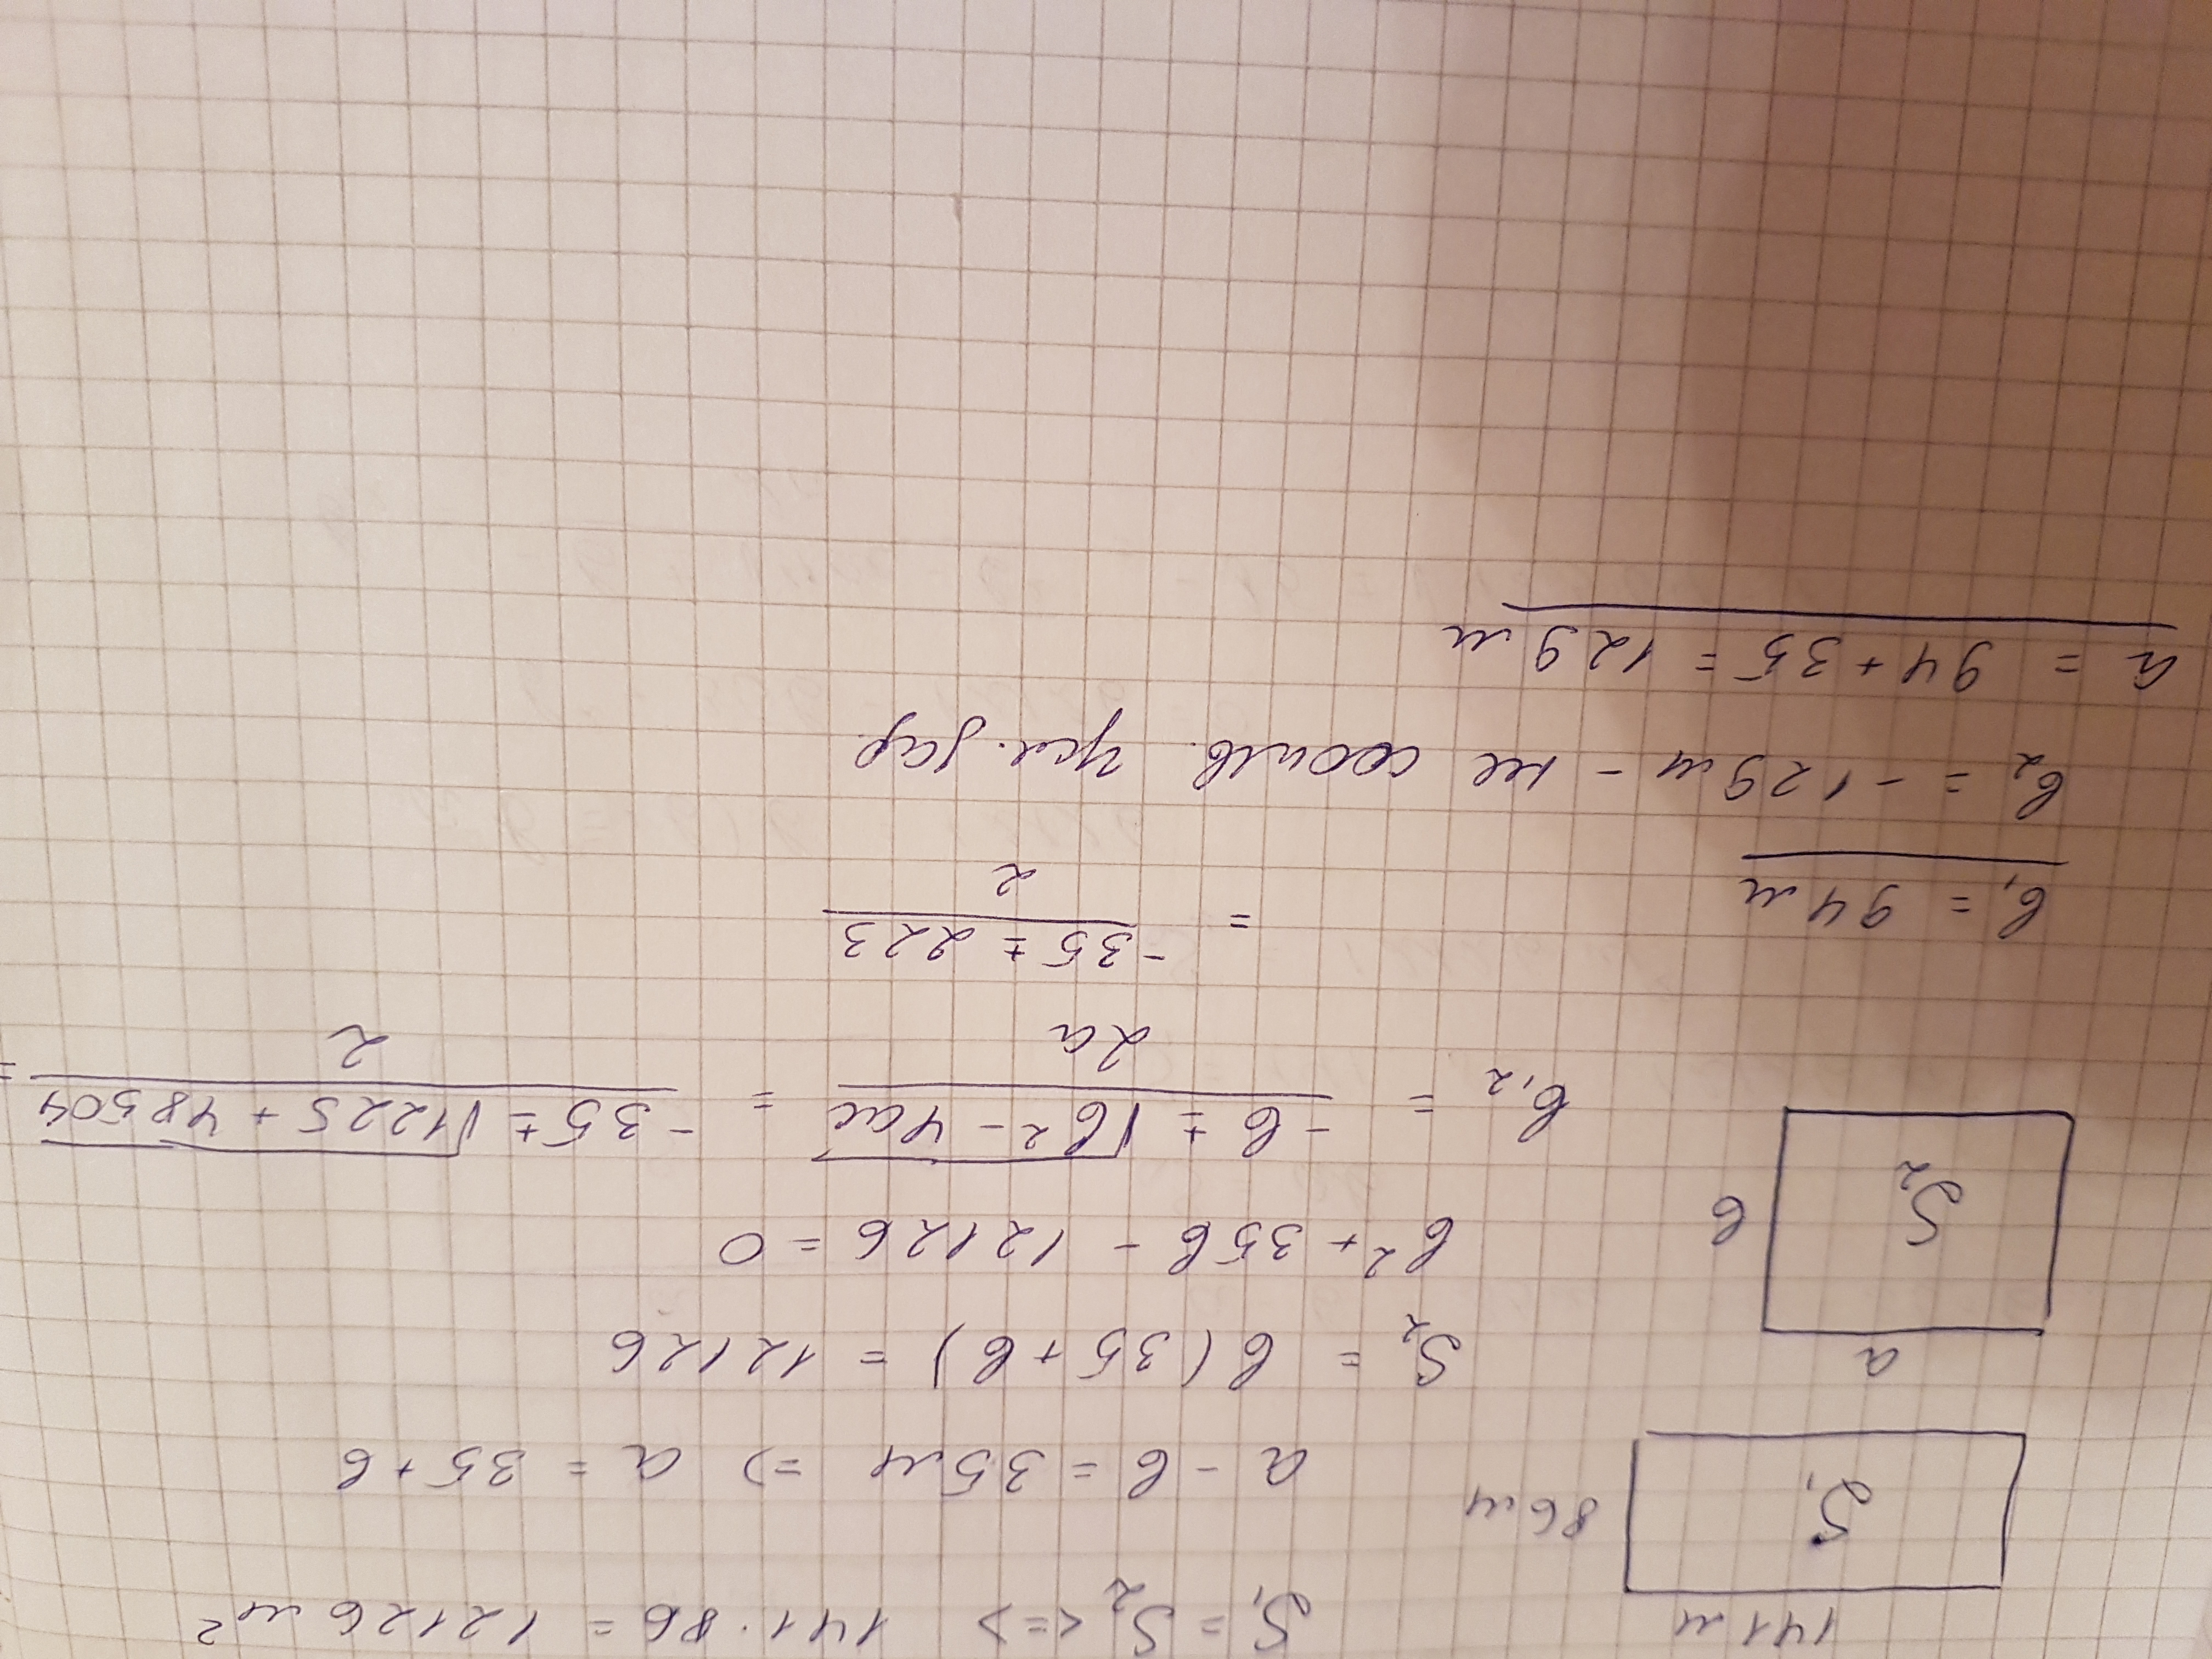 141 м
S₁ = S₂ <=> 141 · 86 = 12126 м²
S₁
86 м
a - в = 35 м => a = 35 + в
a
S₂ = в (35 + в) = 12126
S₂
в
в² + 35в - 12126 = 0
в₁,₂ = (-в ± √(в² - 4ac)) / 2a = (-35 ± √(1225 + 48504)) / 2 =
= (-35 ± 223) / 2
в₁ = 94 м
в₂ = -129 м - не соотв. усл. зад.
a = 94 + 35 = 129 м